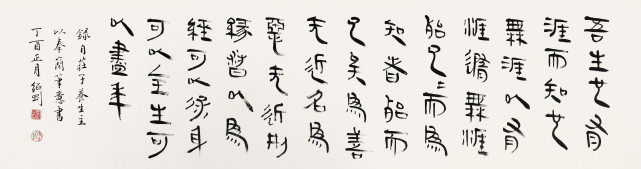 吾生也有
涯而知也
無涯以有
涯隨無涯
殆已已而為
知者殆而
已矣為善
无近名為
惡无近刑
緣督以為
經可以保身
可以全生可
以盡年
錄自莊子養生主
以秦簡筆意書
丁酉正月 紹剛